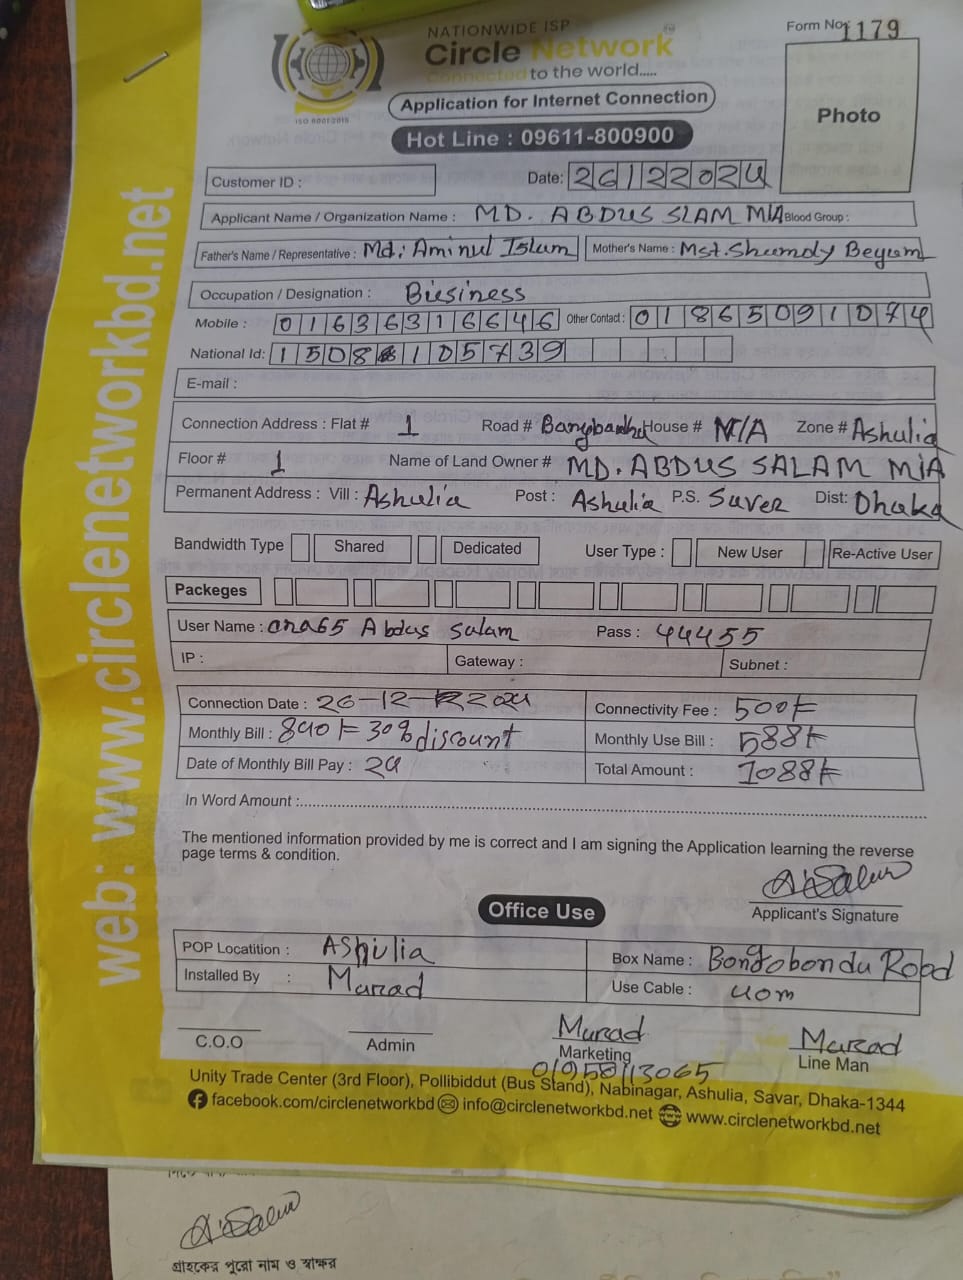 NATIONWIDE ISP
Circle Network
Connected to the world.....
Form No: 1179
ISO 9001:2015
Application for Internet Connection
Photo
Hot Line : 09611-800900
Customer ID :
Date: 26122024
Applicant Name / Organization Name : MD. ABDUS SLAM MIA Blood Group :
Father's Name / Representative : Md: Aminul Islam Mother's Name : Mst. Shumdy Begum
Occupation / Designation : Business
Mobile : 01636316646 Other Contact : 01865091074
National Id: 1508 105739
E-mail :
Connection Address : Flat # 1 Road # Bangabandhu House # N/A Zone # Ashulia
Floor # 1 Name of Land Owner # MD. ABDUS SALAM MIA
Permanent Address : Vill : Ashulia Post : Ashulia P.S. Saver Dist: Dhaka
Bandwidth Type Shared Dedicated User Type : New User Re-Active User
Packeges
User Name : cna65 Abdus salam Pass : 44455
IP : Gateway : Subnet :
Connection Date : 26-12-2024 Connectivity Fee : 500/=
Monthly Bill : 840/= 30% discount Monthly Use Bill : 588/=
Date of Monthly Bill Pay : 24 Total Amount : 1088/=
In Word Amount :
The mentioned information provided by me is correct and I am signing the Application learning the reverse
page terms & condition.
A. Salam
Applicant's Signature
Office Use
POP Locatition : Ashulia Box Name : Bongobondu Road
Installed By : Murad Use Cable : 40m
Murad Murad
C.O.O Admin Marketing Line Man
Unity Trade Center (3rd Floor), Pollibiddut (Bus Stand), Nabinagar, Ashulia, Savar, Dhaka-1344
facebook.com/circlenetworkbd info@circlenetworkbd.net www.circlenetworkbd.net
web: www.circlenetworkbd.net
A. Salam
গ্রাহকের পুরো নাম ও স্বাক্ষর